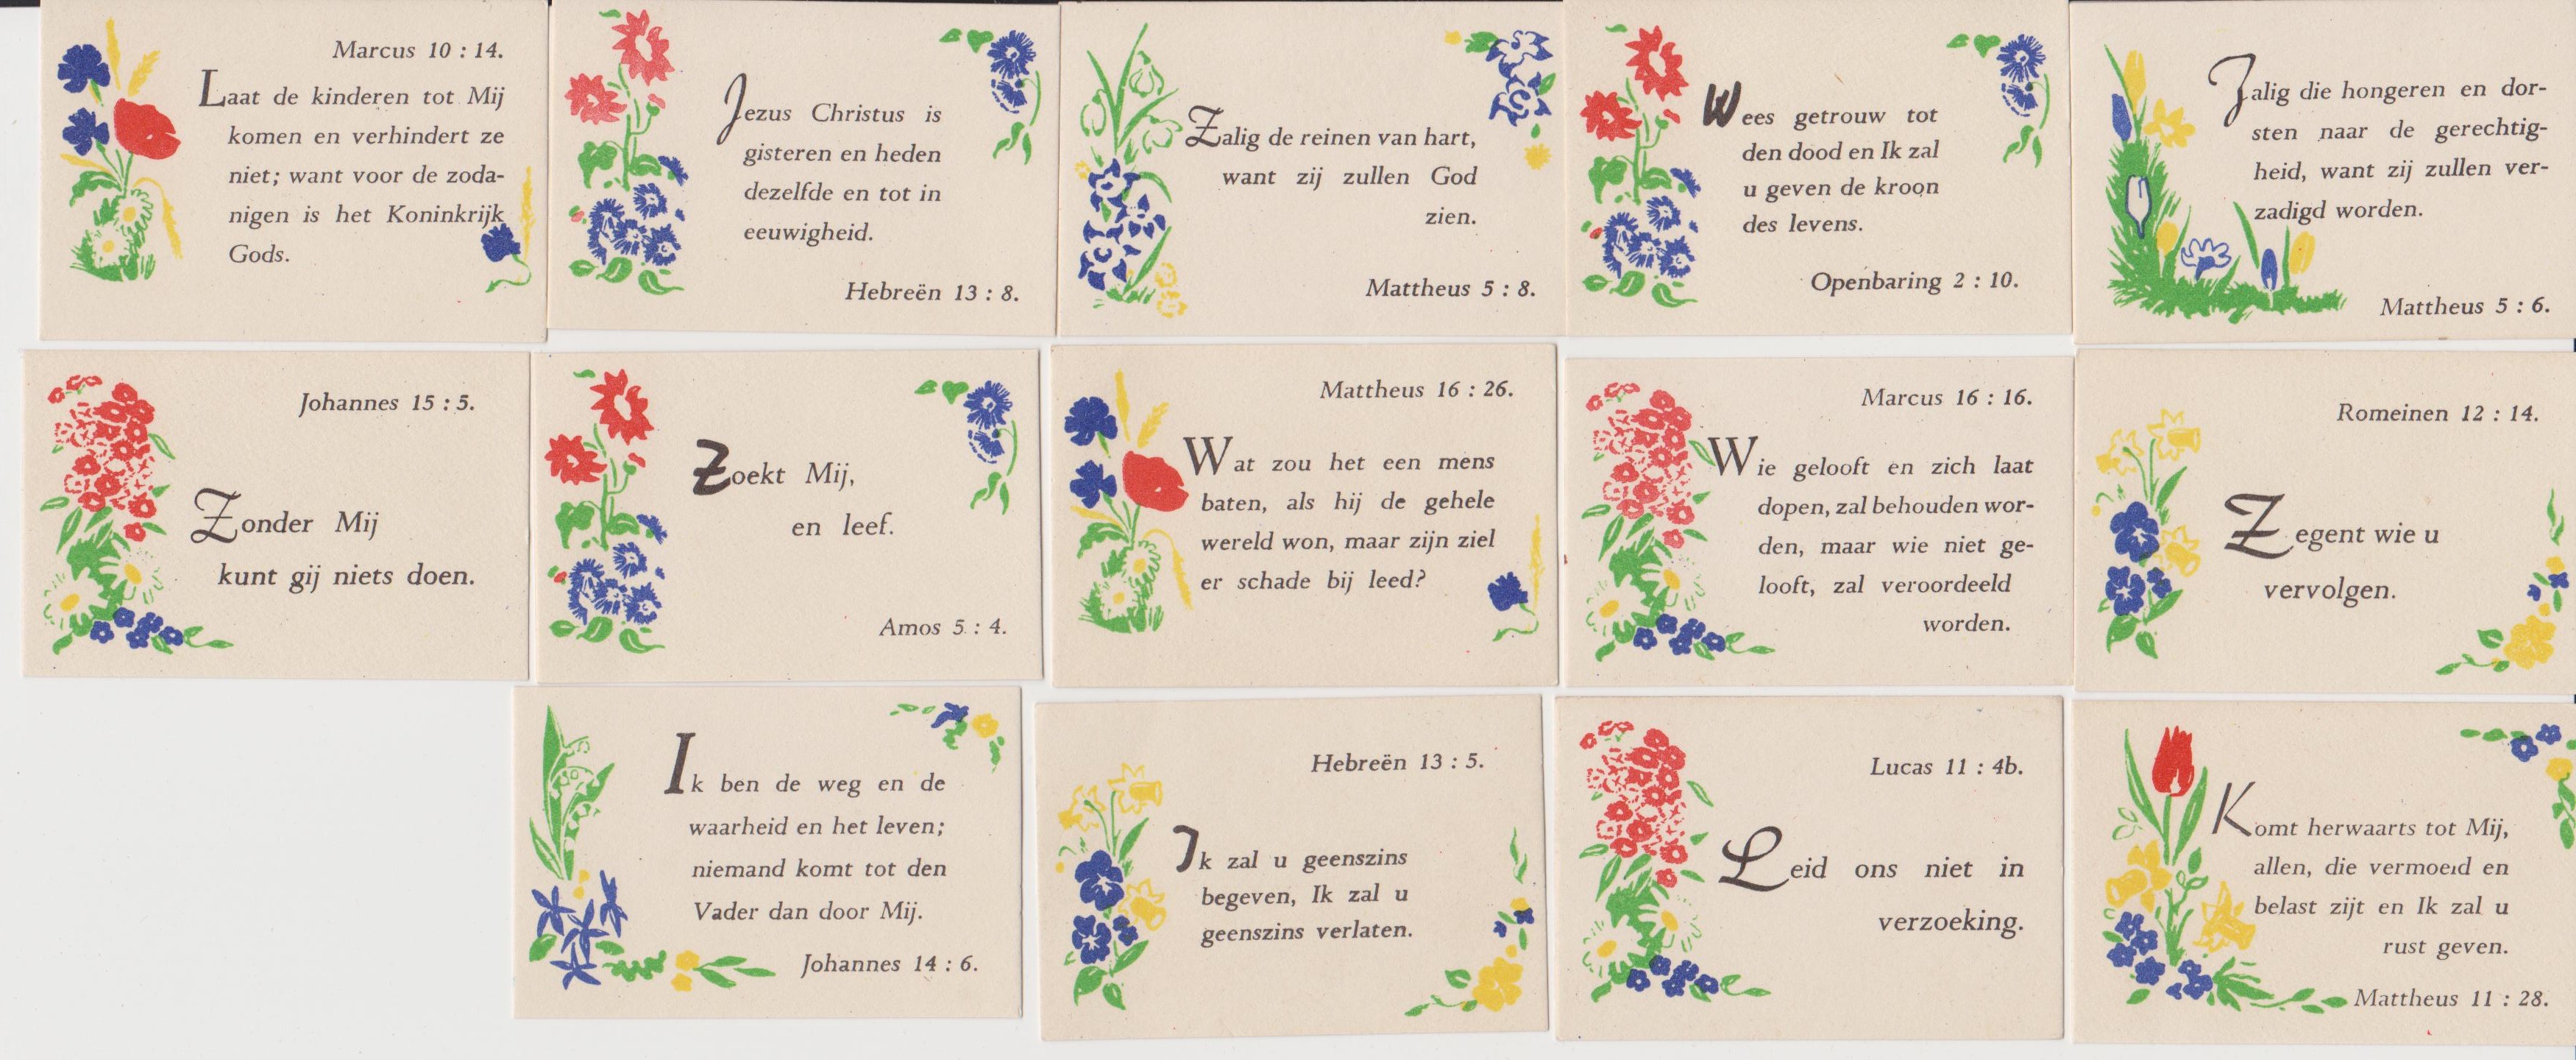 Marcus 10 : 14.
Laat de kinderen tot Mij
komen en verhindert ze
niet; want voor de zoda-
nigen is het Koninkrijk
Gods.
Jezus Christus is
gisteren en heden
dezelfde en tot in
eeuwigheid.
Hebreën 13 : 8.
Zalig de reinen van hart,
want zij zullen God
zien.
Mattheus 5 : 8.
Wees getrouw tot
den dood en Ik zal
u geven de kroon
des levens.
Openbaring 2 : 10.
Zalig die hongeren en dor-
sten naar de gerechtig-
heid, want zij zullen ver-
zadigd worden.
Mattheus 5 : 6.
Johannes 15 : 5.
Zonder Mij
kunt gij niets doen.
Zoekt Mij,
en leef.
Amos 5 : 4.
Mattheus 16 : 26.
Wat zou het een mens
baten, als hij de gehele
wereld won, maar zijn ziel
er schade bij leed?
Marcus 16 : 16.
Wie gelooft en zich laat
dopen, zal behouden wor-
den, maar wie niet ge-
looft, zal veroordeeld
worden.
Romeinen 12 : 14.
Zegent wie u
vervolgen.
Ik ben de weg en de
waarheid en het leven;
niemand komt tot den
Vader dan door Mij.
Johannes 14 : 6.
Hebreën 13 : 5.
Ik zal u geenszins
begeven, Ik zal u
geenszins verlaten.
Lucas 11 : 4b.
Leid ons niet in
verzoeking.
Komt herwaarts tot Mij,
allen, die vermoeid en
belast zijt en Ik zal u
rust geven.
Mattheus 11 : 28.